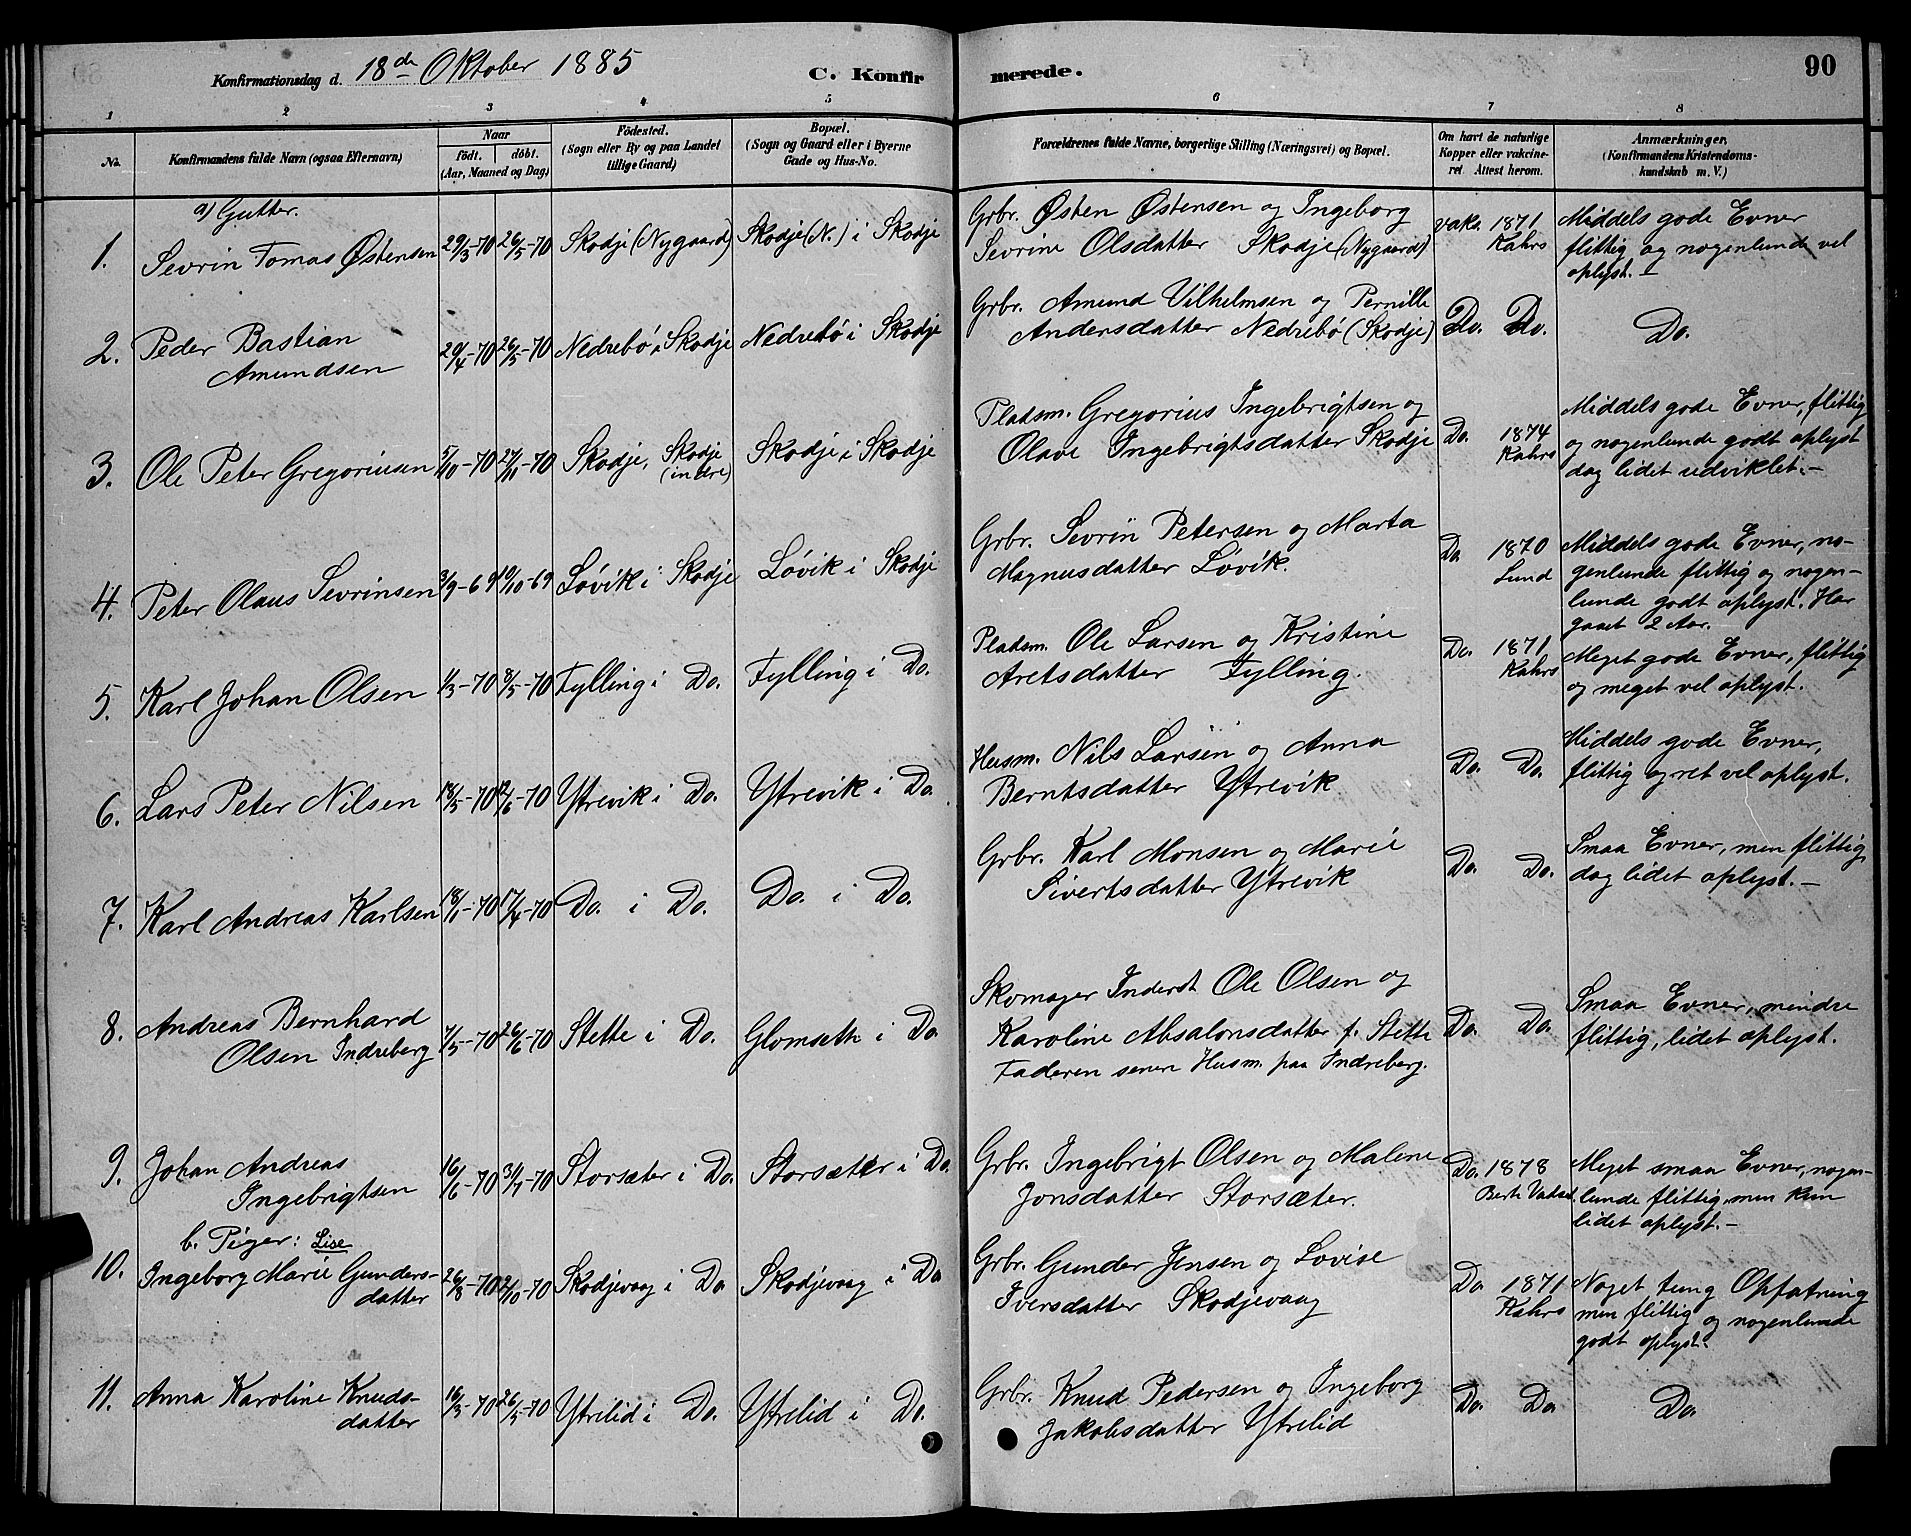 Konfirmationsdag d. 18de Oktober 1885
C. Konfirmerede.
90
1 2 3 4 5 6 7 8
No.
Konfirmandens fulde Navn (ogsaa Efternavn)
Naar
født. døbt.
(Aar, Maaned og Dag)
Födested.
(Sogn eller By og paa Landet
tillige Gaard)
Bopæl.
(Sogn og Gaard eller i Byerne
Gade og Hus-No.
Forældrenes fulde Navne, borgerlige Stilling (Næringsvei) og Bopæl.
Om havt de naturlige
Kopper eller vakcine-
ret Attest herom.
Anmærkninger,
(Konfirmandens Kristendoms-
kundskab m.V.)
a) Gutter.
1. Sevrin Tomas Østensen 29/3-70 26/5-70 Skodje (Nygaard) Skodje (N.) i Skodje
Grbr. Østen Østensen og Ingeborg
Sevrine Olsdatter Skodje (Nygaard)
vakc. 1871
Kahrs
Middels gode Evner
flittig og nogenlunde vel
oplyst.
2. Peder Bastian
Amundsen
29/4-70 26/5-70 Nedrebö i Skodje Nedrebö i Skodje
Grbr. Amund Vilhelmsen og Pernille
Andersdatter Nedrebö (Skodje)
Do. Do. Do.
3. Ole Peter Gregoriusen 5/10-70 27/11-70 Skodje, Skodje
(indre)
Skodje i Skodje
Pladsm. Gregorius Ingebrigtsen og
Olave Ingebrigtsdatter Skodje
Do. 1874
Kahrs
Middels gode Evner, flittig
og nogenlunde godt oplyst
dog lidet udviklet.-
4. Peter Olaus Sevrinsen 3/9-69 10/10-69 Løvik i Skodje Løvik i Skodje
Grbr. Sevrin Petersen og Marta
Magnusdatter Løvik.
Do 1870
Lund
Middels gode Evner, no-
genlunde flittig og nogen-
lunde godt oplyst. Har
gaaet 2 Aar.
5. Karl Johan Olsen 1/3-70 8/5-70 Fylling i Do. Fylling i Do.
Pladsm. Ole Larsen og Kristine
Aretsdatter Fylling.
Do. 1871
Kahrs
Meget gode Evner, flittig
og meget vel oplyst.
6. Lars Peter Nilsen 18/5-70 12/6-70 Ytrevik i Do. Ytrevik i Do.
Husm. Nils Larsen og Anna
Berntsdatter Ytrevik
Do. Do.
Middels gode Evner,
flittig og ret vel oplyst.
7. Karl Andreas Karlsen 18/1-70 17/4-70 Do. i Do. Do. i Do.
Grbr. Karl Monsen og Marie
Sivertsdatter Ytrevik
Do. Do.
Smaa Evner, men flittig,
dog lidet oplyst.-
8. Andreas Bernhard
Olsen Indreberg
7/5-70 26/6-70 Stette i Do. Glomseth i Do.
Skomager Inderst Ole Olsen og
Karoline Absalonsdatter f. Stette
Faderen senere Husm. paa Indreberg.
Do. Do.
Smaa Evner, mindre
flittig, lidet oplyst.
9. Johan Andreas
Ingebrigtsen
16/6-70 3/7-70 Storsæter i Do. Storsæter i Do.
Grbr. Ingebrigt Olsen og Malene
Jonsdatter Storsæter.
Do. 1878
Bert Vadset
Meget smaa Evner, nogen-
lunde flittig, men kun
lidet oplyst.-
b. Piger:
10. Ingeborg Marie Lise Gunders-
datter
26/8-70 2/10-70 Skodjevaag i Do Skodjevaag i Do
Grbr. Gunder Jensen og Lovise
Iversdatter Skodjevaag
Do 1871
Kahrs
Noget tung Opfatning
men flittig og nogenlunde
godt oplyst.
11. Anna Karoline Knuds-
datter
16/3-70 26/5-70 Ytrelid i Do. Ytrelid i Do.
Grbr. Knud Pedersen og Ingeborg
Jakobsdatter Ytrelid
Do. Do. Do.